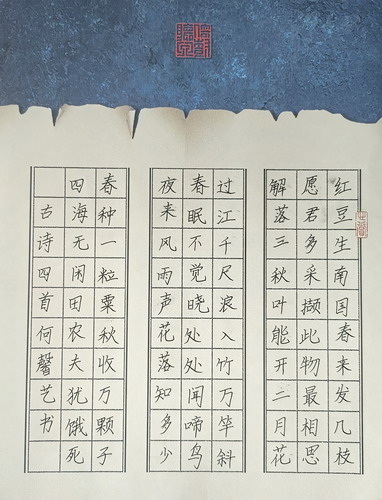 红豆生南国春来发几枝
愿君多采撷此物最相思
解落三秋叶能开二月花
过江千尺浪入竹万竿斜
春眠不觉晓处处闻啼鸟
夜来风雨声花落知多少
春种一粒粟秋收万颗子
四海无闲田农夫犹饿死
古诗四首何馨艺书